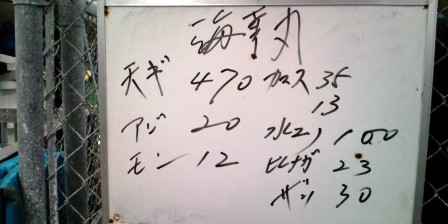 海幸丸
天ギ 470 カス 35
13
アジ 20 水コ 100
モン 12 ヒナガ 23
ザン 30